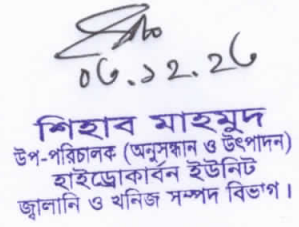 ০৬.১২.২৬
শিহাব মাহমুদ
উপ-পরিচালক (অনুসন্ধান ও উৎপাদন)
হাইড্রোকার্বন ইউনিট
জ্বালানি ও খনিজ সম্পদ বিভাগ।